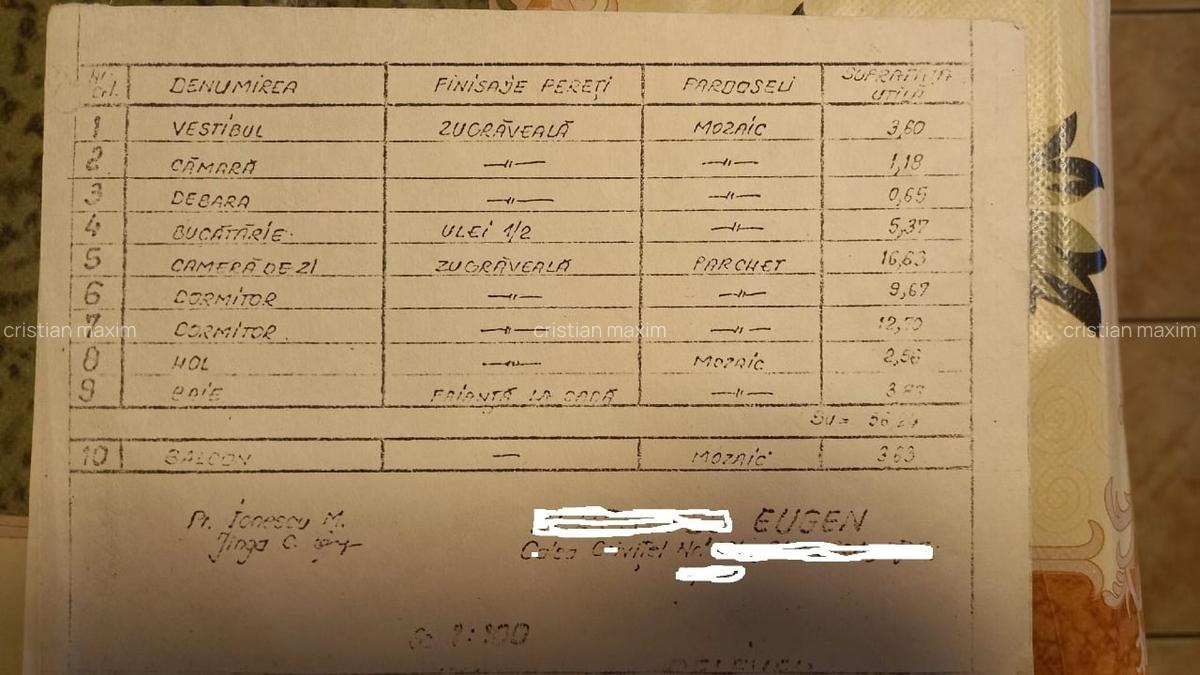 Nr. Crt. DENUMIREA FINISAJE PEREȚI PARDOSELI SUPRAFAȚA UTILĂ
1 VESTIBUL ZUGRĂVEALĂ MOZAIC 3,60
2 CĂMARĂ —〃— —〃— 1,18
3 DEBARA —〃— —〃— 0,65
4 BUCĂTĂRIE ULEI 1/2 —〃— 5,37
5 CAMERĂ DE ZI ZUGRĂVEALĂ PARCHET 16,63
6 DORMITOR —〃— —〃— 9,67
7 DORMITOR —〃— —〃— 12,70
cristian maxim cristian maxim cristian maxim
8 HOL —〃— MOZAIC 2,56
9 BAIE FAIANȚĂ LA CADĂ —〃—
Su = 56,24
10 BALCON — MOZAIC 3,63
Pr. Ionescu M. EUGEN
Jinga C. Calea Nr.
Sc. 1:100